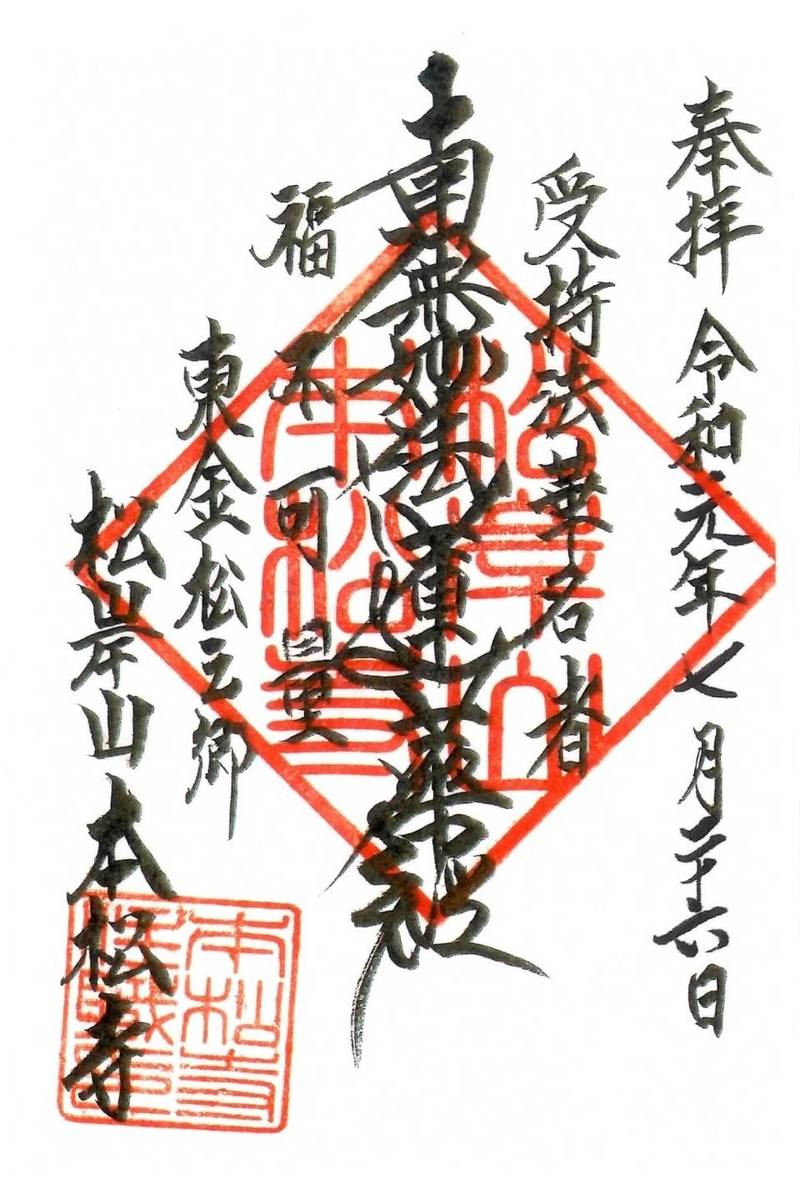 奉拝 令和元年七月二十六日
受持法華名者
南無妙法蓮華経
福不可量
東金松之郷
松岸山 本松寺
松岸山
本松寺
本松寺